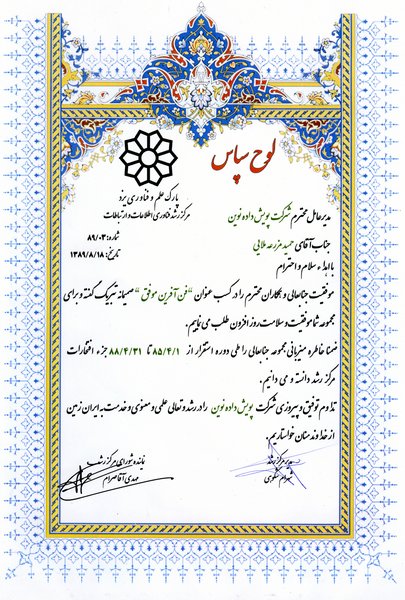 لوح سپاس
پارک علم و فناوری یزد
مرکز رشد فناوری اطلاعات و ارتباطات
شماره: ۸۹/۰۳
تاریخ: ۱۳۸۹/۸/۱۸
مدیرعامل محترم شرکت پویش داده نوین
جناب آقای حمید مزرعه ملایی
با اهداء سلام و احترام
موفقیت جنابعالی و همکاران محترم را در کسب عنوان "فن آفرین موفق" صمیمانه تبریک گفته و برای
مجموعه شما موفقیت و سلامت روزافزون طلب می نماییم.
ضمنا خاطره میزبانی مجموعه جنابعالی را طی دوره استقرار از ۸۵/۴/۱ تا ۸۸/۴/۳۱ جزء افتخارات
مرکز رشد دانسته و می دانیم.
تداوم توفیق و پیروزی شرکت پویش داده نوین را در رشد و تعالی علمی و معنوی و خدمت به ایران زمین
از خداوند منان خواستاریم.
مدیر مرکز رشد
شهرام شکوهی
نماینده شورای مرکز رشد
مهدی آقاصرام